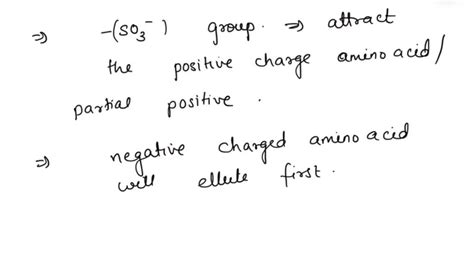 ⇒ -(SO₃⁻) group. ⇒ attract
the positive charge amino acid/
partial positive.
⇒ negative charged amino acid
will ellute first.